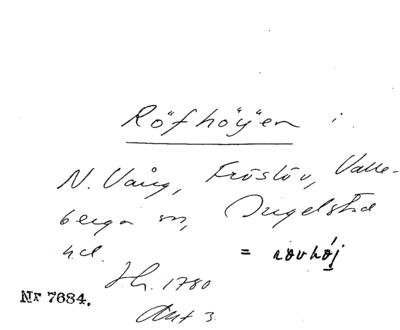 Röfhöÿen
N. Vång, Fröslöv, Valle-
berga sn, Ingelstad
hd. = rovhój
Jh. 1780
Akt 3.
Nr 7684.